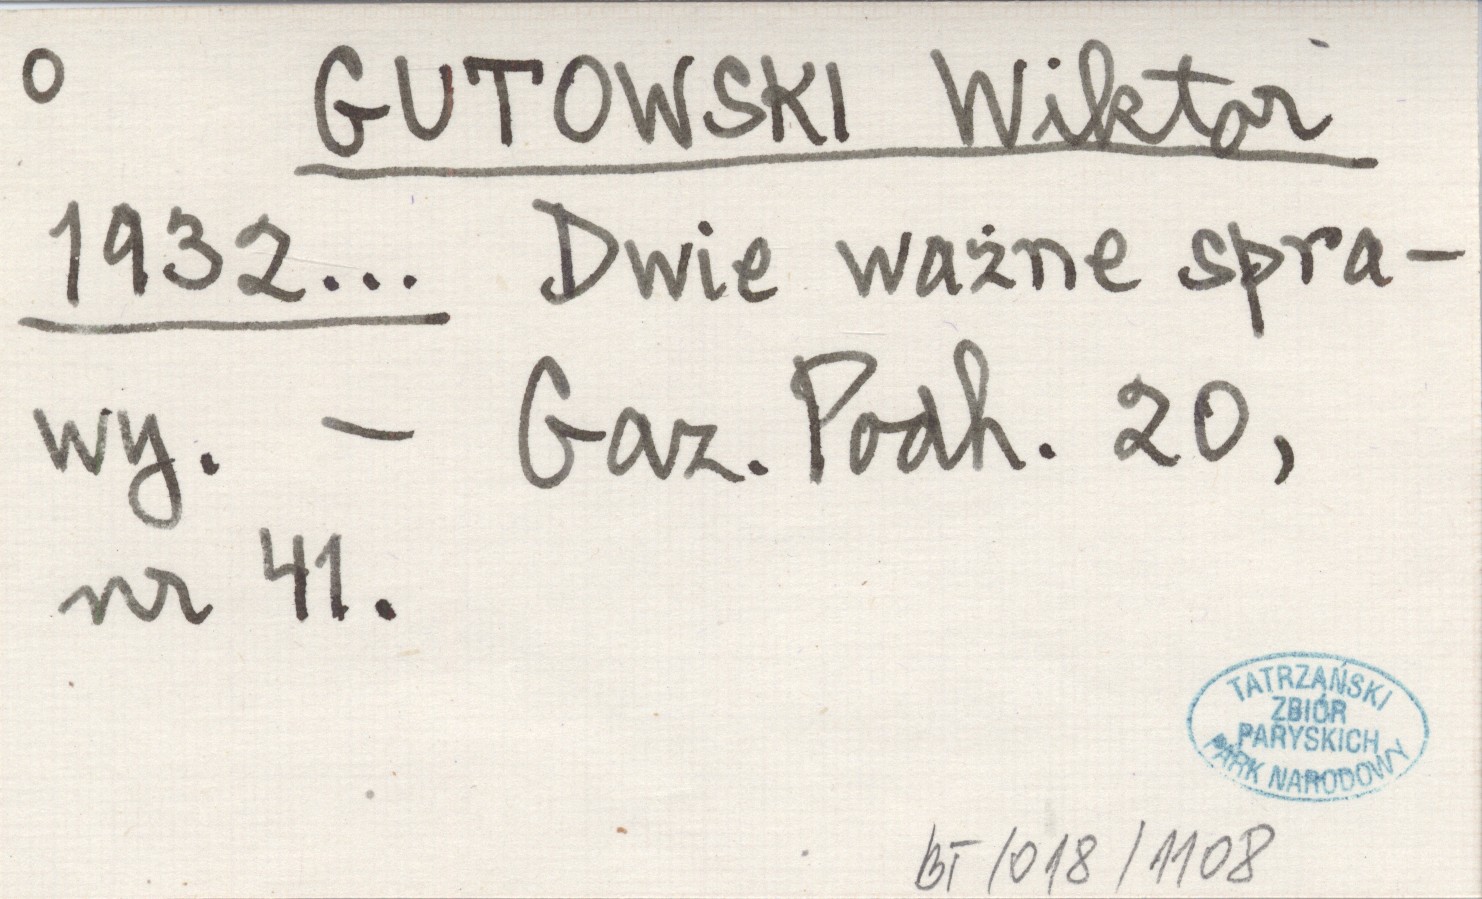 o GUTOWSKI Wiktor
1932... Dwie ważne spra-
wy. – Gaz. Podh. 20,
nr 41.
TATRZAŃSKI
ZBIÓR
PARYSKICH
PARK NARODOWY
BT/018/1108